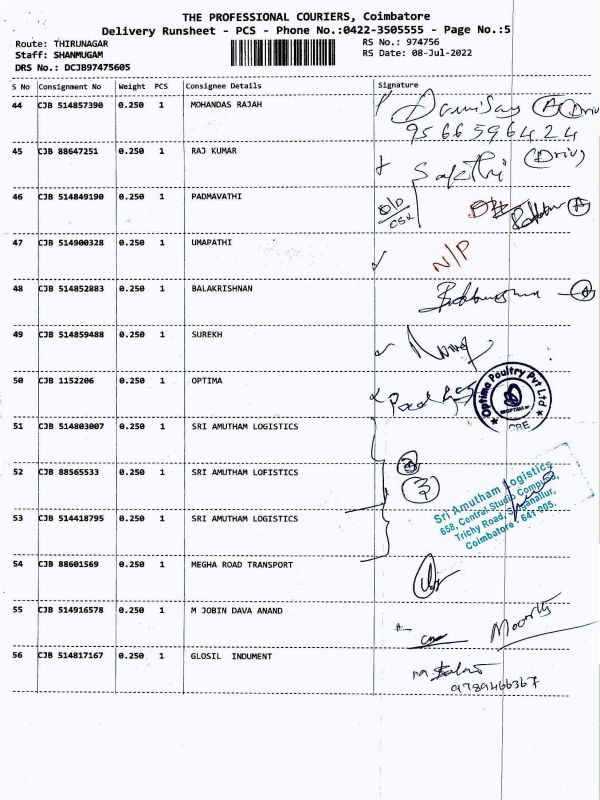 THE PROFESSIONAL COURIERS, Coimbatore
Delivery Runsheet - PCS - Phone No.:0422-3505555 - Page No.:5
Route: THIRUNAGAR RS No.: 974756
Staff: SHANMUGAM RS Date: 08-Jul-2022
DRS No.: DCJB97475605
S No Consignment No Weight PCS Consignee Details Signature
44 CJB 514857390 0.250 1 MOHANDAS RAJAH
9566596424
45 CJB 88647251 0.250 1 RAJ KUMAR Sakthi
46 CJB 514849190 0.250 1 PADMAVATHI
47 CJB 514900328 0.250 1 UMAPATHI N/P
48 CJB 514852883 0.250 1 BALAKRISHNAN
49 CJB 514859488 0.250 1 SUREKH
50 CJB 1152206 0.250 1 OPTIMA Optima Poultry Pvt Ltd
CBE
51 CJB 514803007 0.250 1 SRI AMUTHAM LOGISTICS
52 CJB 88565533 0.250 1 SRI AMUTHAM LOFISTICS
53 CJB 514418795 0.250 1 SRI AMUTHAM LOGISTICS
Sri Amutham Logistics
658, Central Studio Compound,
Trichy Road, Singanallur,
Coimbatore - 641 005.
54 CJB 88601569 0.250 1 MEGHA ROAD TRANSPORT
55 CJB 514916578 0.250 1 M JOBIN DAVA ANAND Moorthy
56 CJB 514817167 0.250 1 GLOSIL INDUMENT
9789466367